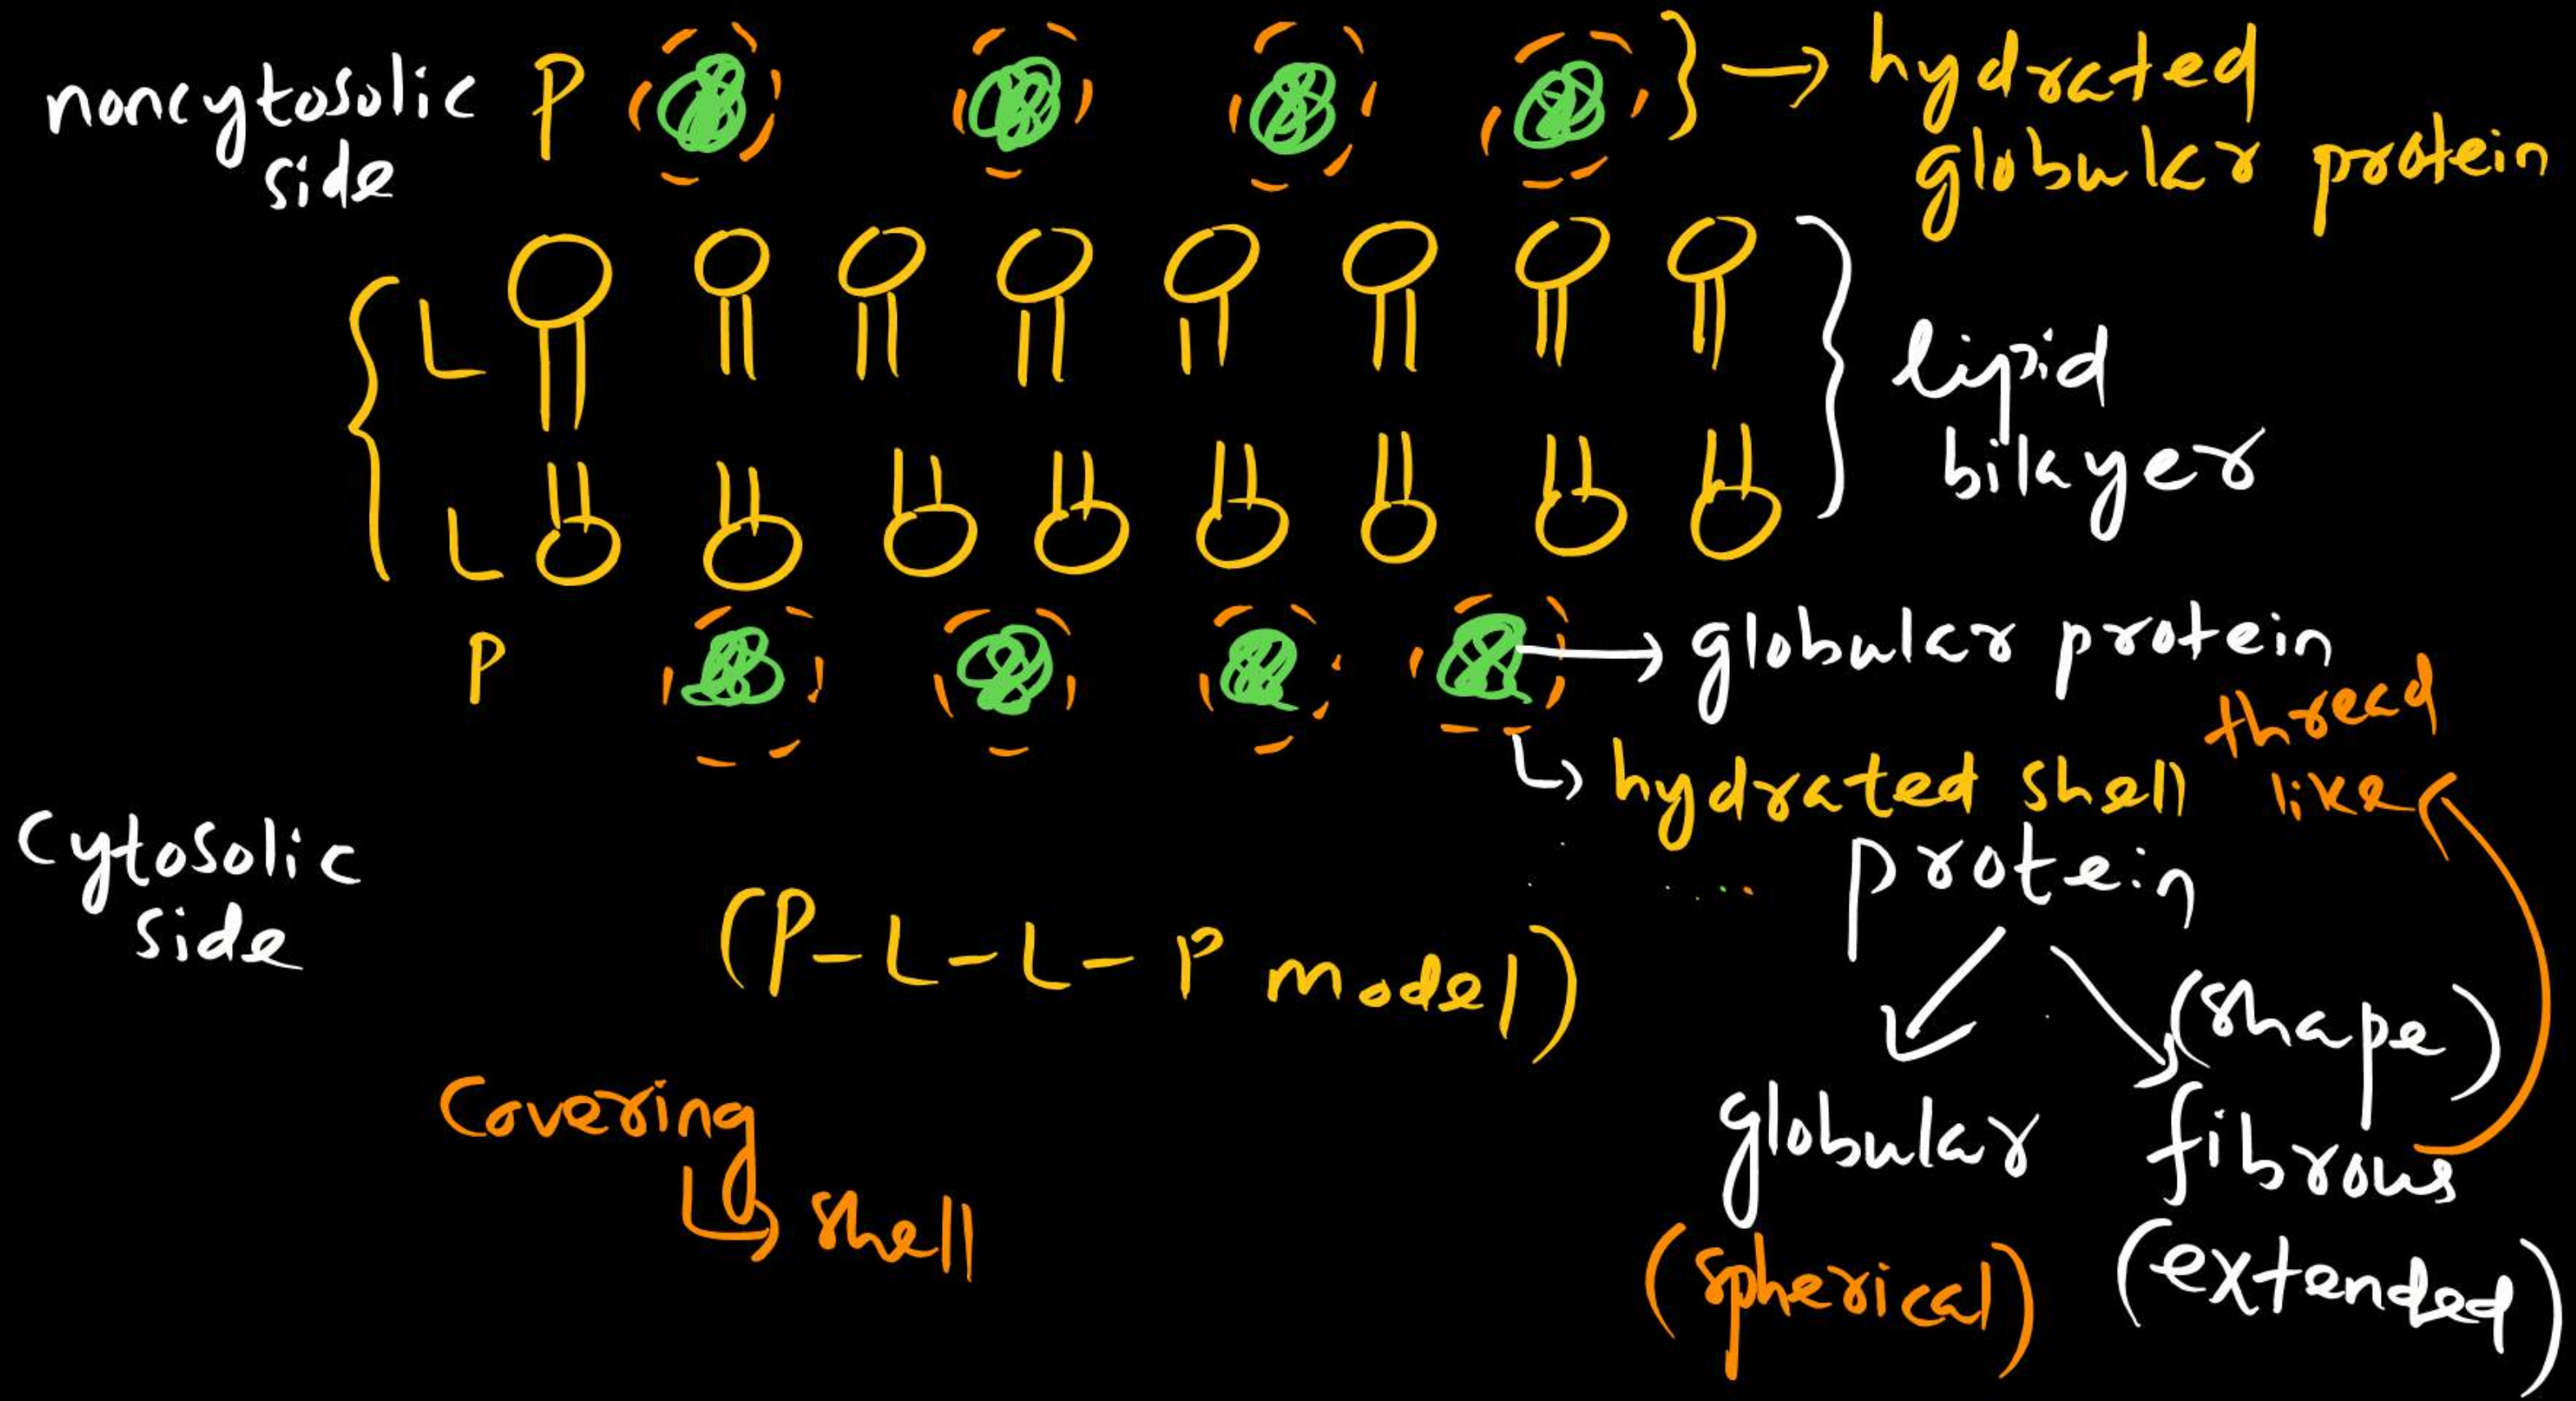 noncytosolic
side
P
hydrated
globular protein
L
L
lipid
bilayer
P
globular protein
hydrated shell
thread
like
Cytosolic
side
(P-L-L-P model)
Covering
shell
protein
(shape)
globular
fibrous
(spherical)
(extended)